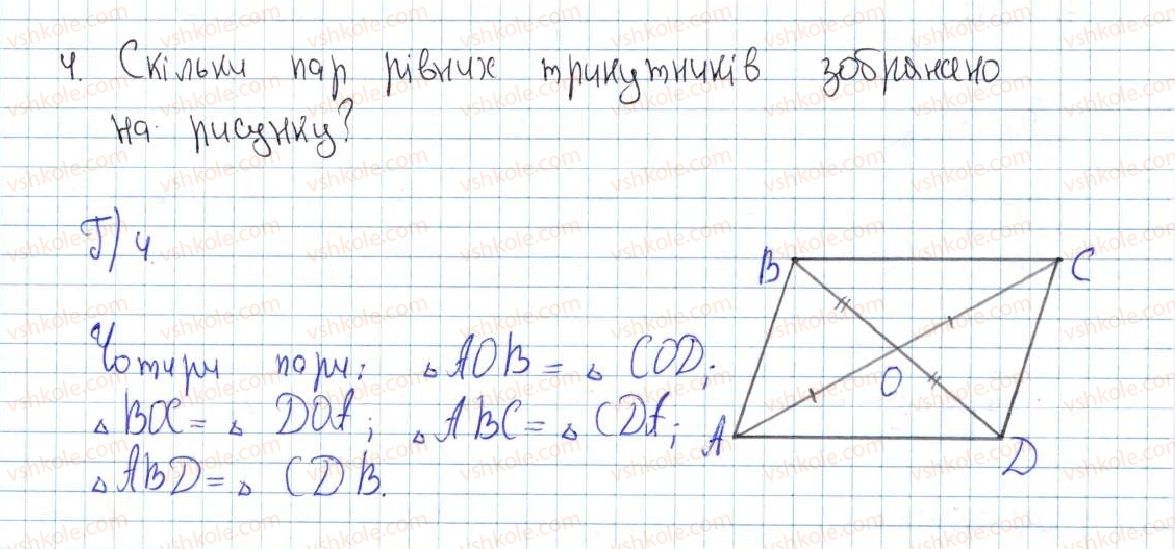 4. Скільки пар рівних трикутників зображено
на рисунку?
Г) 4.
Чотири пари: △AOB = △COD;
△BOC = △DOA; △ABC = △CDA;
△ABD = △CDB.
B
C
O
A
D
vshkole.com